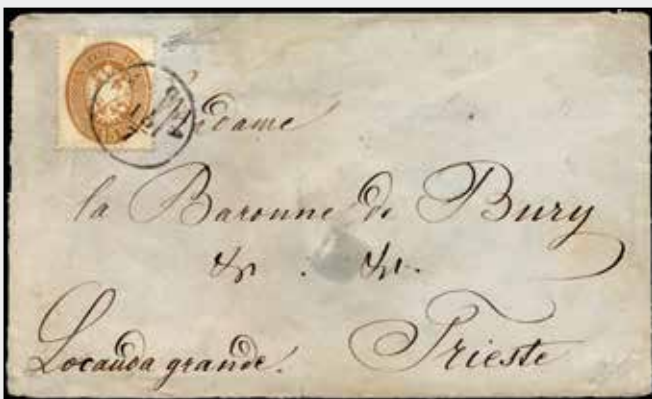 Madame
la Baronne de Bury
&c. &c.
Locanda grande. Trieste